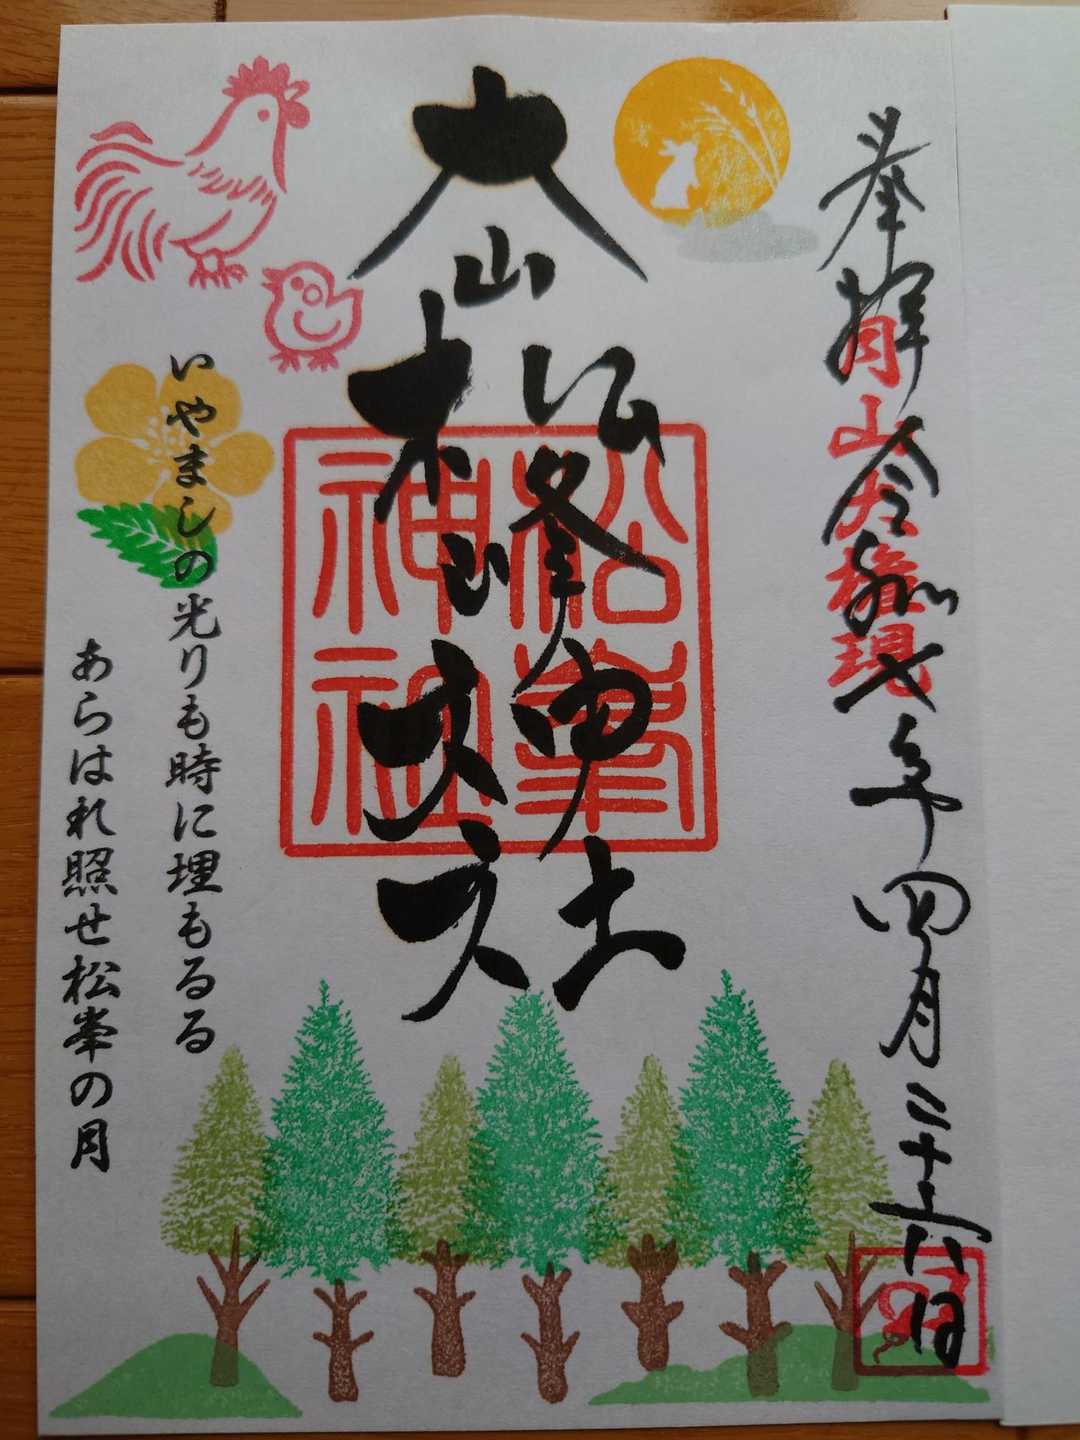 奉拝 令和七年四月二十六日
月山大権現
松峰神社
松峯神社
いやましの光りも時に埋もるる
あらはれ照せ松峯の月